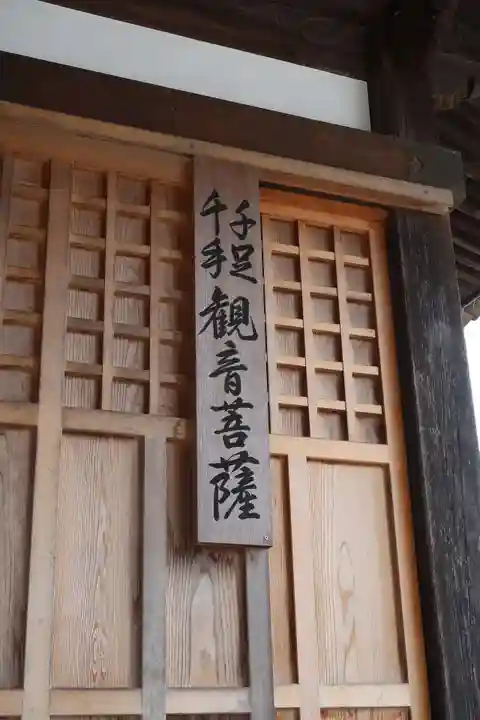 千足
千手
観音菩薩